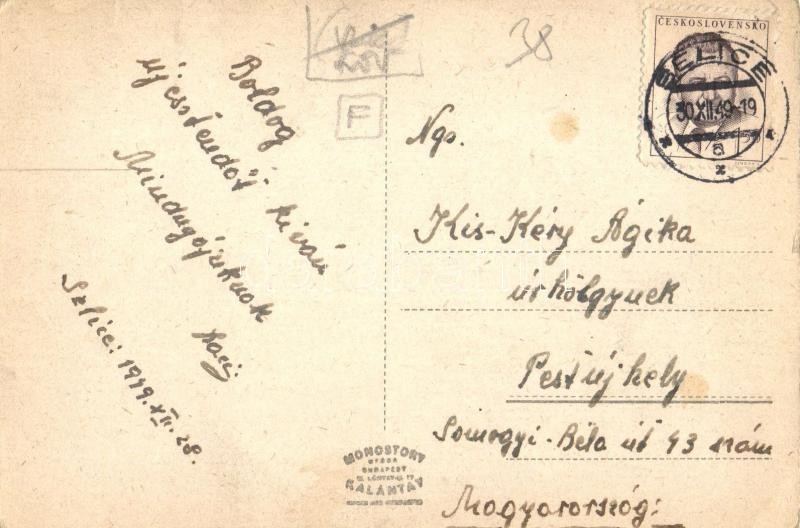 Boldog
új esztendőt kíván
Mindnyájuknak
Laci
Szelice: 1949. XII. 28.
38
F
ČESKOSLOVENSKO
SELICE
30.XII.49-19
a
Ngs.
Kis-Kéry Ágika
úrhölgynek
Pestújhely
Somogyi-Béla út 43 szám
Magyarország:
MONOSTORY
GYÖRGY
BUDAPEST
KALANTAI